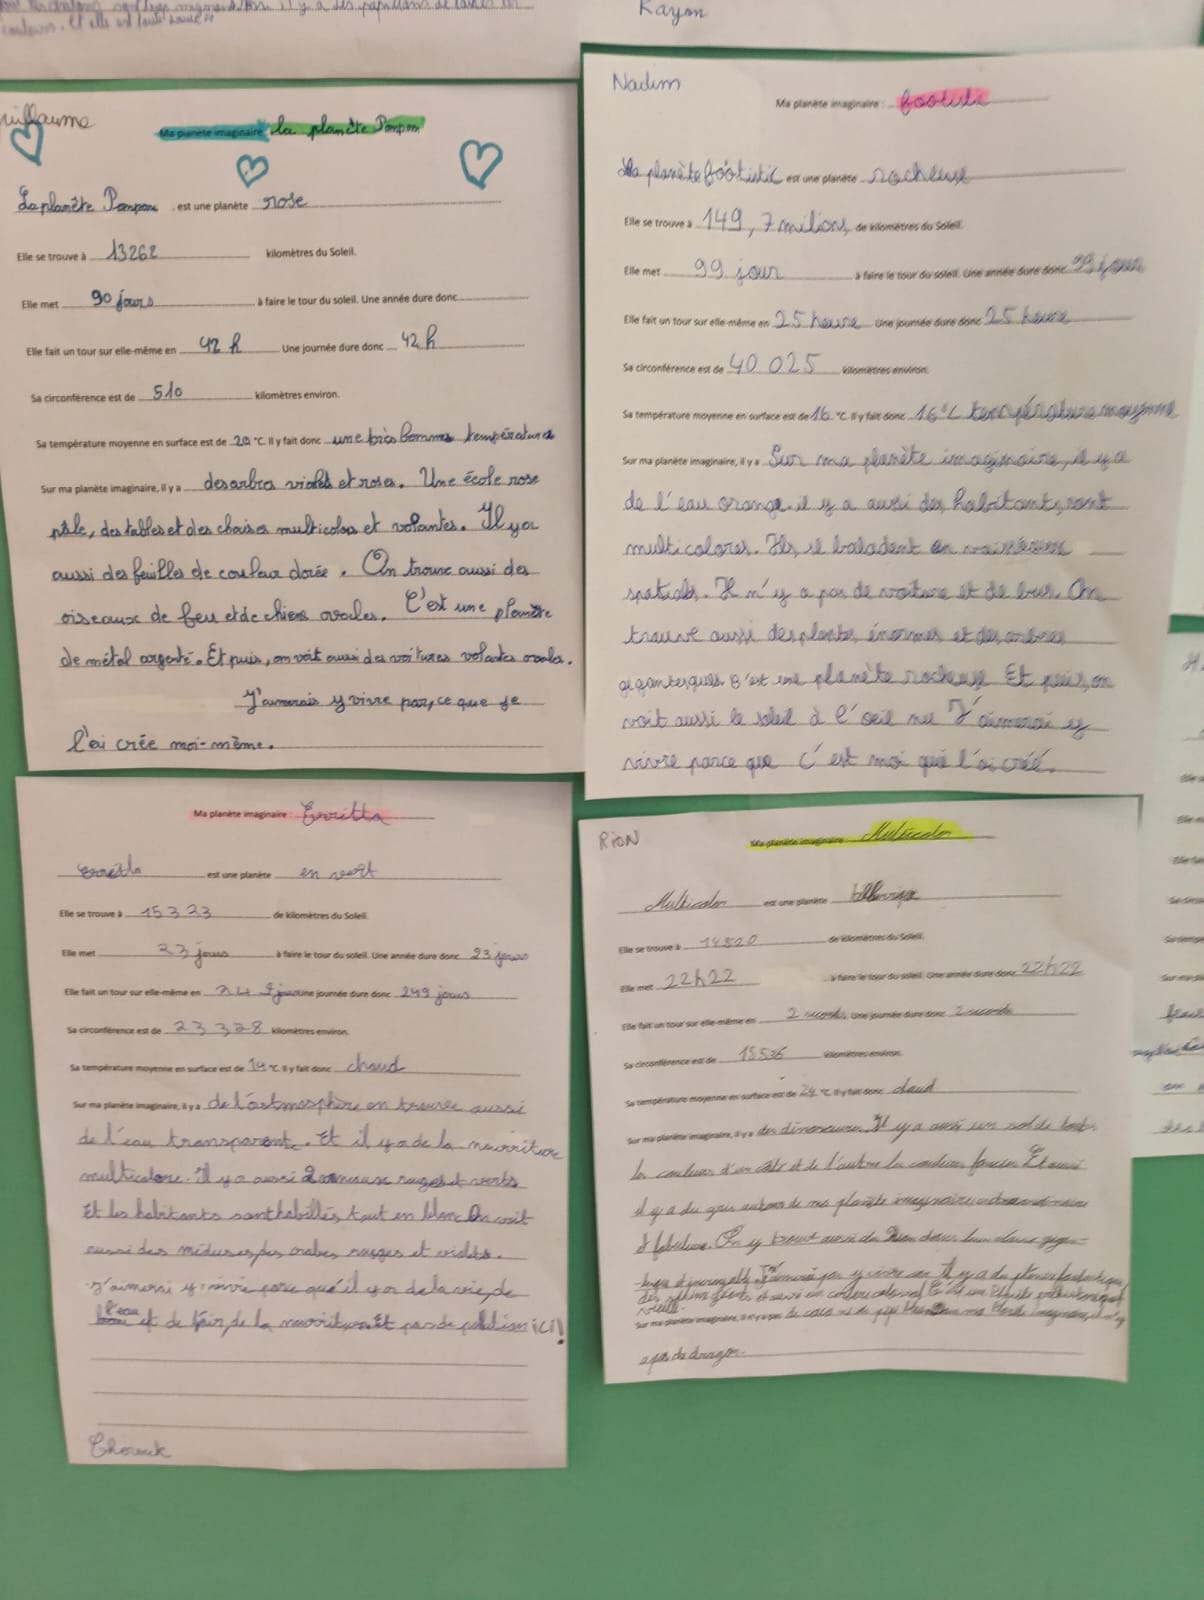 couleurs. Et elle est toute
Rayon
Guillaume
Ma planète imaginaire : la planète Pompom
La planète Pompom est une planète rose
Elle se trouve à 13262 kilomètres du Soleil.
Elle met 90 jours à faire le tour du soleil. Une année dure donc
Elle fait un tour sur elle-même en 42 h Une journée dure donc 42 h
Sa circonférence est de 510 kilomètres environ.
Sa température moyenne en surface est de 20 °C. Il y fait donc une très bonne température
Sur ma planète imaginaire, il y a des arbres violets et roses. Une école rose
pâle, des tables et des chaises multicolores et volantes. Il y a
aussi des feuilles de couleur dorée. On trouve aussi des
oiseaux de feu et de chiens ovales. C'est une planète
de métal argenté. Et puis, on voit aussi des voitures volantes ovales.
J'aimerais y vivre par, ce que je
l'ai crée moi-même.
Nadim
Ma planète imaginaire :
La planète footistic est une planète rocheuse
Elle se trouve à 149,7 milions de kilomètres du Soleil.
Elle met 99 jour à faire le tour du soleil. Une année dure donc 99 jour
Elle fait un tour sur elle-même en 25 heure Une journée dure donc 25 heure
Sa circonférence est de 40 025 kilomètres environ.
Sa température moyenne en surface est de 16 °C. Il y fait donc 16°C température moyenne
Sur ma planète imaginaire, il y a Sur ma planète imaginaire, il y a
de l'eau orange. il y a aussi des habitants, sont
multicolores. Ils se baladent en vaisseaux
spatials. Il n'y a pas de voiture et de bus. On
trouve aussi des plantes énormes et des arbres
gigantesques. C'est une planète rocheuse Et puis, on
voit aussi le soleil à l'oeil nu J'aimerai y
vivre parce que c'est moi qui l'ai créé.
Ma planète imaginaire : Evritta
est une planète en vert
Elle se trouve à 15323 de kilomètres du Soleil.
Elle met 23 jours à faire le tour du soleil. Une année dure donc 23 jours
Elle fait un tour sur elle-même en Une journée dure donc 249 jours
Sa circonférence est de 23 328 kilomètres environ.
Sa température moyenne en surface est de 14 °C. Il y fait donc chaud
Sur ma planète imaginaire, il y a de l'astmosphère on trouve aussi
de l'eau transparent. Et il y a de la nourriture
multicolore. Il y a aussi 2 rouges et verts
Et les habitants sont habillés tout en blanc On voit
aussi des méduses, des crabes rouges et violets.
J'aimerai y vivre parce qu'il y a de la vie, de
l'eau et de l'air, de la nourriture Et pas de pollution ici!
Chorouk
RION
Ma planète imaginaire : Multicolor
Multicolor est une planète tellurique
Elle se trouve à 14520 de kilomètres du Soleil.
Elle met 22h22 à faire le tour du soleil. Une année dure donc 22h22
Elle fait un tour sur elle-même en 2 seconds Une journée dure donc 2 seconds
Sa circonférence est de 15536 kilomètres environ.
Sa température moyenne en surface est de 24 °C. Il y fait donc chaud
Sur ma planète imaginaire, il y a des dinosaures. Il y a aussi un sol de toutes
les couleurs d'un côté et de l'autre les couleurs foncées Et aussi
il y a du gris autour de ma planète imaginaire
et fabuleuse. On y trouve aussi
Sur ma planète imaginaire, il n'y a pas de
a pas de dragon.